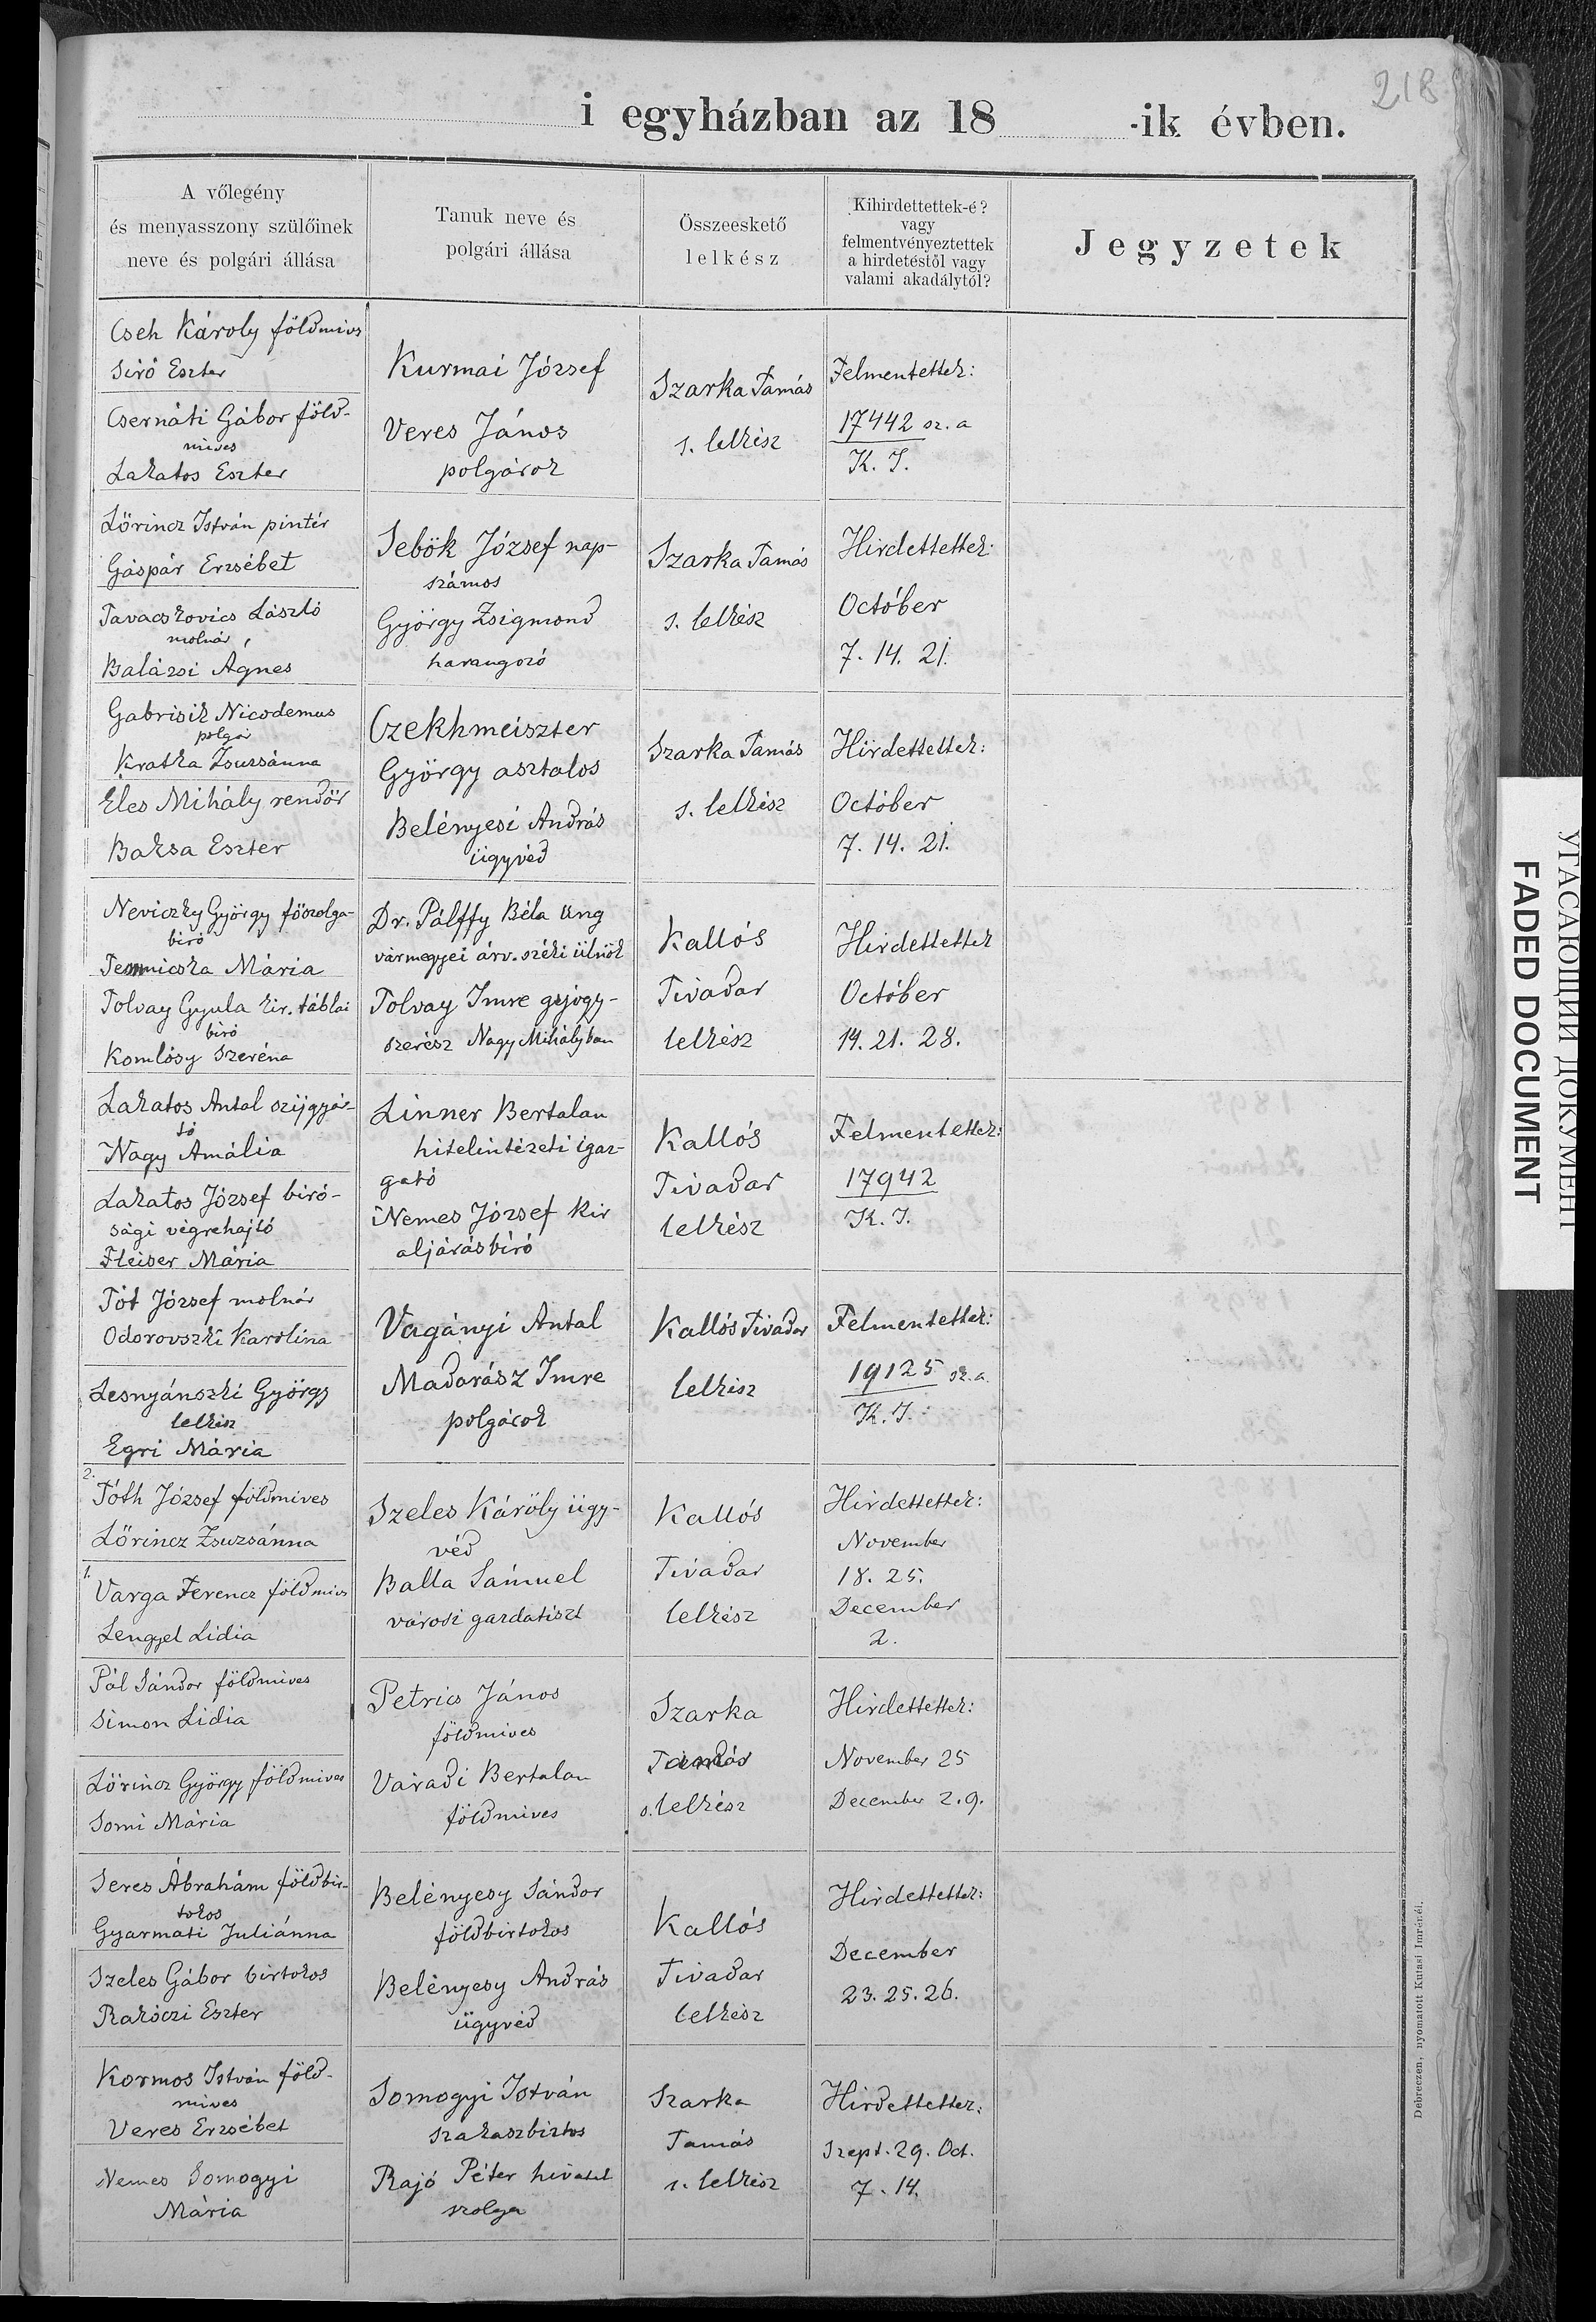 218
i egyházban az 18 -ik évben.
A vőlegény
és menyasszony szülőinek
neve és polgári állása
Tanuk neve és
polgári állása
Összeeskető
lelkész
Kihirdettettek-é?
vagy
felmentvényeztettek
a hirdetéstől vagy
valami akadálytól?
Jegyzetek
Cseh Károly földmives
Siró Eszter
Csernáti Gábor föld-
mives
Lakatos Eszter
Kurmai József
Veres János
polgárok
Szarka Tamás
s. lelkész
Felmentettek:
17442 sz. a
K. I.
Lőrincz István pintér
Gáspár Erzsébet
Tavaczkovics László
molnár
Balázsi Ágnes
Sebők József nap-
számos
György Zsigmond
harangozó
Szarka Tamás
s. lelkész
Hirdettettek:
Október
7. 14. 21.
Gabrisik Nicodemus
polgá
Kratka Zsuzsánna
Éles Mihály rendőr
Baksa Eszter
Czekhmeiszter
György asztalos
Belényesi András
ügyvéd
Szarka Tamás
s. lelkész
Hirdettettek:
Október
7. 14. 21.
Neviczky György főszolga-
biró
Mária
Tolvay Gyula kir. táblai
biró
Komlósy Szeréna
Dr. Pálffy Béla Ung
vármegyei árv. széki ülnök
Tolvay Imre gyógy-
szerész Nagy Mihályban
Kallós
Tivadar
lelkész
Hirdettettek
Október
14. 21. 28.
Lakatos Antal szijgyár-
tó
Nagy Amália
Lakatos József biró-
sági végrehajtó
Fleiser Mária
Linner Bertalan
hitelintézeti igaz-
gató
Nemes József kir
aljárásbiró
Kallós
Tivadar
lelkész
Felmentettek:
17942
K. I.
Tót József molnár
Odorovszki Karolina
Lesnyánszki György
lelkész
Egri Mária
Vagányi Antal
Madarász Imre
polgárok
Kallós Tivadar
lelkész
Felmentettek:
19125 sz. a.
K. I.
2.
Tóth József földmives
Lőrincz Zsuzsánna
1.
Varga Ferencz földmives
Lengyel Lidia
Szeles Károly ügy-
véd
Balla Sámuel
városi gazdatiszt
Kallós
Tivadar
lelkész
Hirdettettek:
November
18. 25.
December
2.
Pál Sándor földmives
Simon Lidia
Lőrincz György földmives
Somi Mária
Petrics János
földmives
Váradi Bertalan
földmives
Szarka
Tamás
s. lelkész
Hirdettettek:
November 25
December 2. 9.
Seres Ábrahám földbir-
tokos
Gyarmati Juliánna
Szeles Gábor birtokos
Rakóczi Eszter
Belényesy Sándor
földbirtokos
Belényesy András
ügyvéd
Kallós
Tivadar
lelkész
Hirdettettek:
December
23. 25. 26.
Kormos István föld-
mives
Veres Erzsébet
Nemes Somogyi
Mária
Somogyi István
szakaszbiztos
Rajó Péter hivatal
szolga
Szarka
Tamás
s. lelkész
Hirdettettek:
Szept. 29. Oct.
7. 14.
Debreczen, nyomatott Kutasi Imrénél.
УГАСАЮЩИЙ ДОКУМЕНТ
FADED DOCUMENT